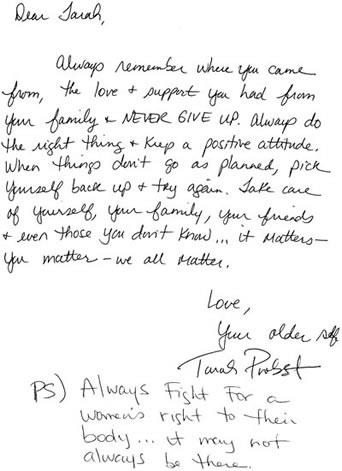 Dear Tarah,
Always remember where you came
from, the love & support you had from
your family & NEVER GIVE UP. Always do
the right thing & keep a positive attitude.
When things don't go as planned, pick
yourself back up & try again. Take care
of yourself, your family, your friends
& even those you don't know... it matters-
you matter - we all matter.
Love,
Your older self
Tarah Probst
PS) Always Fight For a
women's right to their
body... it may not
always be there.